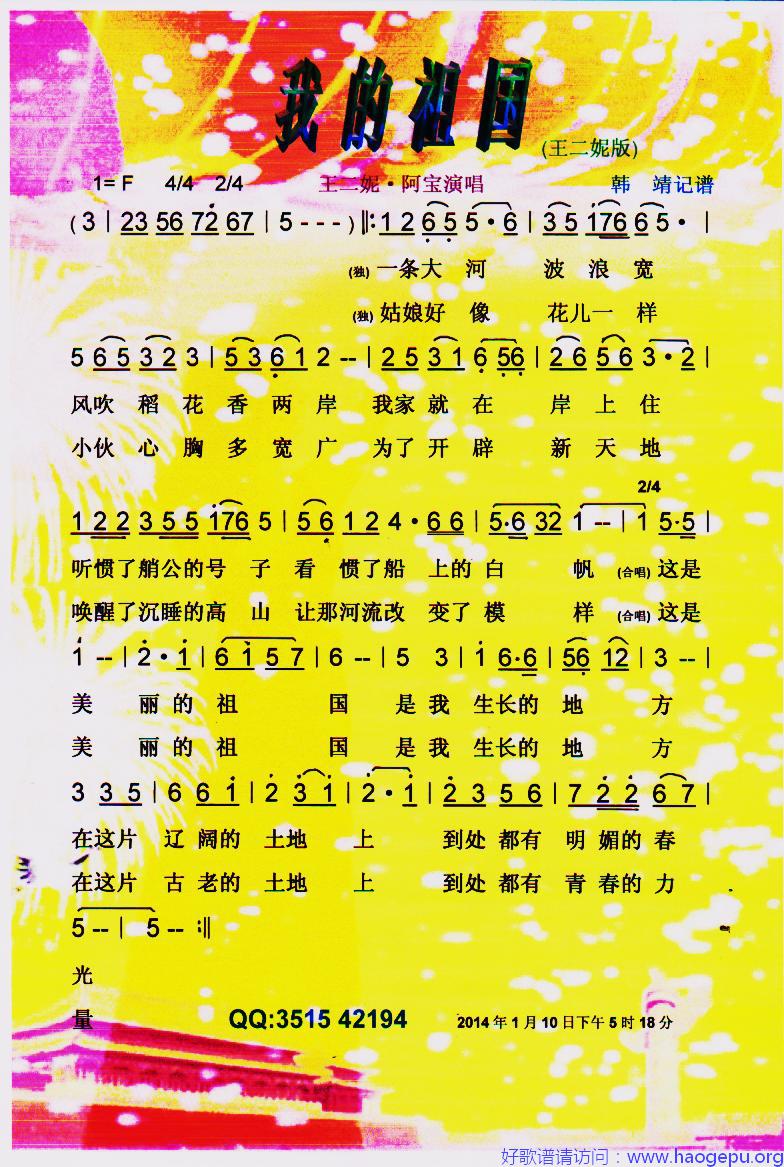 我的祖国
(王二妮版)
1=F 4/4 2/4 王二妮·阿宝演唱 韩 靖记谱
(3 | 23 56 72 67 | 5 - - - ) ‖: 1 2 6 5 5 · 6 | 3 5 176 6 5 · |
(独) 一条大 河 波 浪 宽
(独) 姑娘好 像 花儿一 样
5 6 5 3 2 3 | 5 3 6 1 2 -- | 2 5 3 1 6 56 | 2 6 5 6 3 · 2 |
风吹 稻 花 香 两 岸 我家 就 在 岸 上 住
小伙 心 胸 多 宽 广 为了 开 辟 新 天 地
2/4
1 2 2 3 5 5 176 5 | 5 6 1 2 4 · 6 6 | 5·6 32 1 -- | 1 5·5 |
听惯了艄公的号 子 看 惯了船 上的 白 帆 (合唱) 这是
唤醒了沉睡的高 山 让那河流改 变了 模 样 (合唱) 这是
1 -- | 2 · 1 | 6 1 5 7 | 6 -- | 5 3 | 1 6·6 | 56 12 | 3 -- |
美 丽 的 祖 国 是 我 生长的 地 方
美 丽 的 祖 国 是 我 生长的 地 方
3 3 5 | 6 6 1 | 2 3 1 | 2 · 1 | 2 3 5 6 | 7 2 2 6 7 |
在这片 辽 阔的 土地 上 到处 都有 明 媚的 春
在这片 古 老的 土地 上 到处 都有 青 春的 力
5 -- | 5 -- :‖
光
量
QQ:3515 42194 2014年1月10日下午5时18分
好歌谱请访问：www.haogepu.org